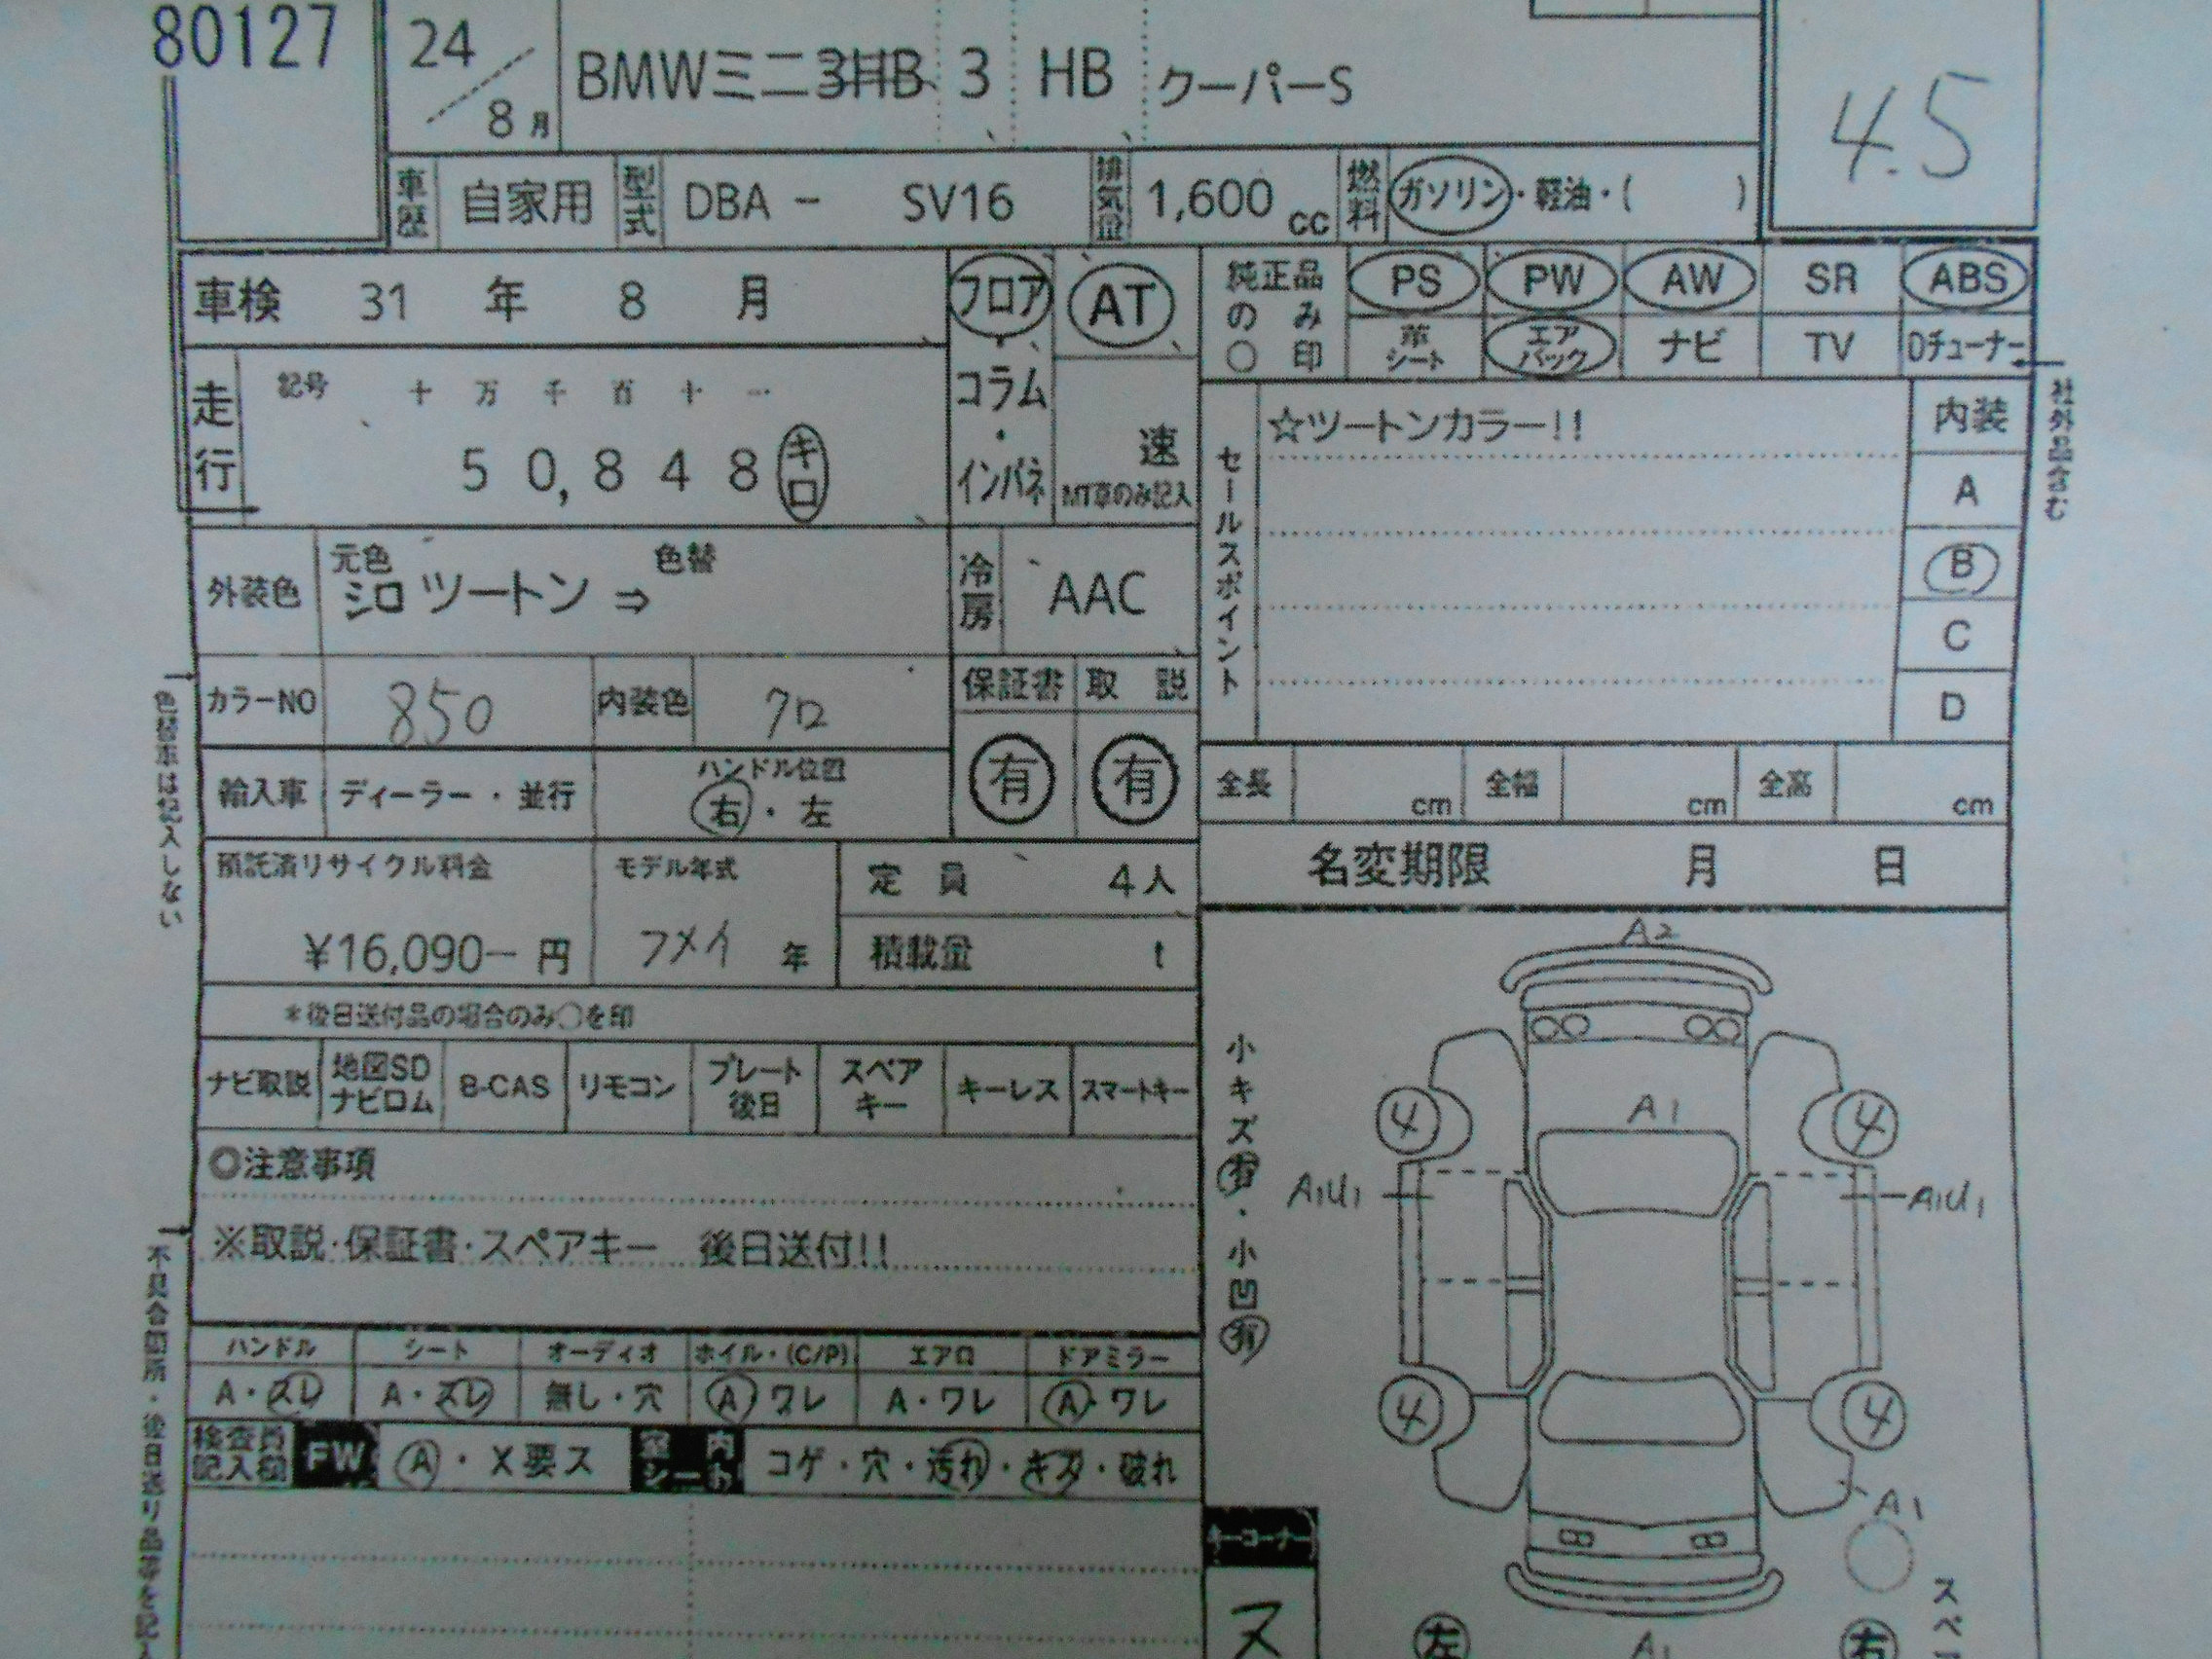 80127
24
8月
BMWミニ3HB 3 HB クーパーS
4.5
車歴 自家用 型式 DBA - SV16 排気量 1,600 cc 燃料 ガソリン・軽油・( )
車検 31 年 8 月
フロア AT
純正品のみ○印 PS PW AW SR ABS
革シート エアバック ナビ TV Dチューナー
社外品含む
走行
記号 十 万 千 百 十 一
50,848キロ
コラム・インパネ
速
MT車のみ記入
セールスポイント
☆ツートンカラー!!
内装
A
B
C
D
外装色 元色 シロ ツートン ⇒ 色替
冷房 AAC
カラーNO 850 内装色 クロ
保証書 取説
有 有
輸入車 ディーラー・並行 ハンドル位置
右・左
全長 cm 全幅 cm 全高 cm
預託済リサイクル料金
¥16,090- 円
モデル年式
フメイ 年
定員 4人
積載量 t
名変期限 月 日
*後日送付品の場合のみ○を印
ナビ取説 地図SDナビロム B-CAS リモコン プレート後日 スペアキー キーレス スマートキー
◎注意事項
※取説・保証書・スペアキー 後日送付!!
ハンドル シート オーディオ ホイル・(C/P) エアロ ドアミラー
A・スレ A・スレ 無し・穴 A ワレ A・ワレ A・ワレ
検査員記入欄 FW A・X要ス 室内シート コゲ・穴・汚れ・キズ・破れ
小キズ有・小凹有
A2
4 A1 4
A1U1 A1U1
4 4
A1
キーコーナー
ヌ
左 A1 右
スペ